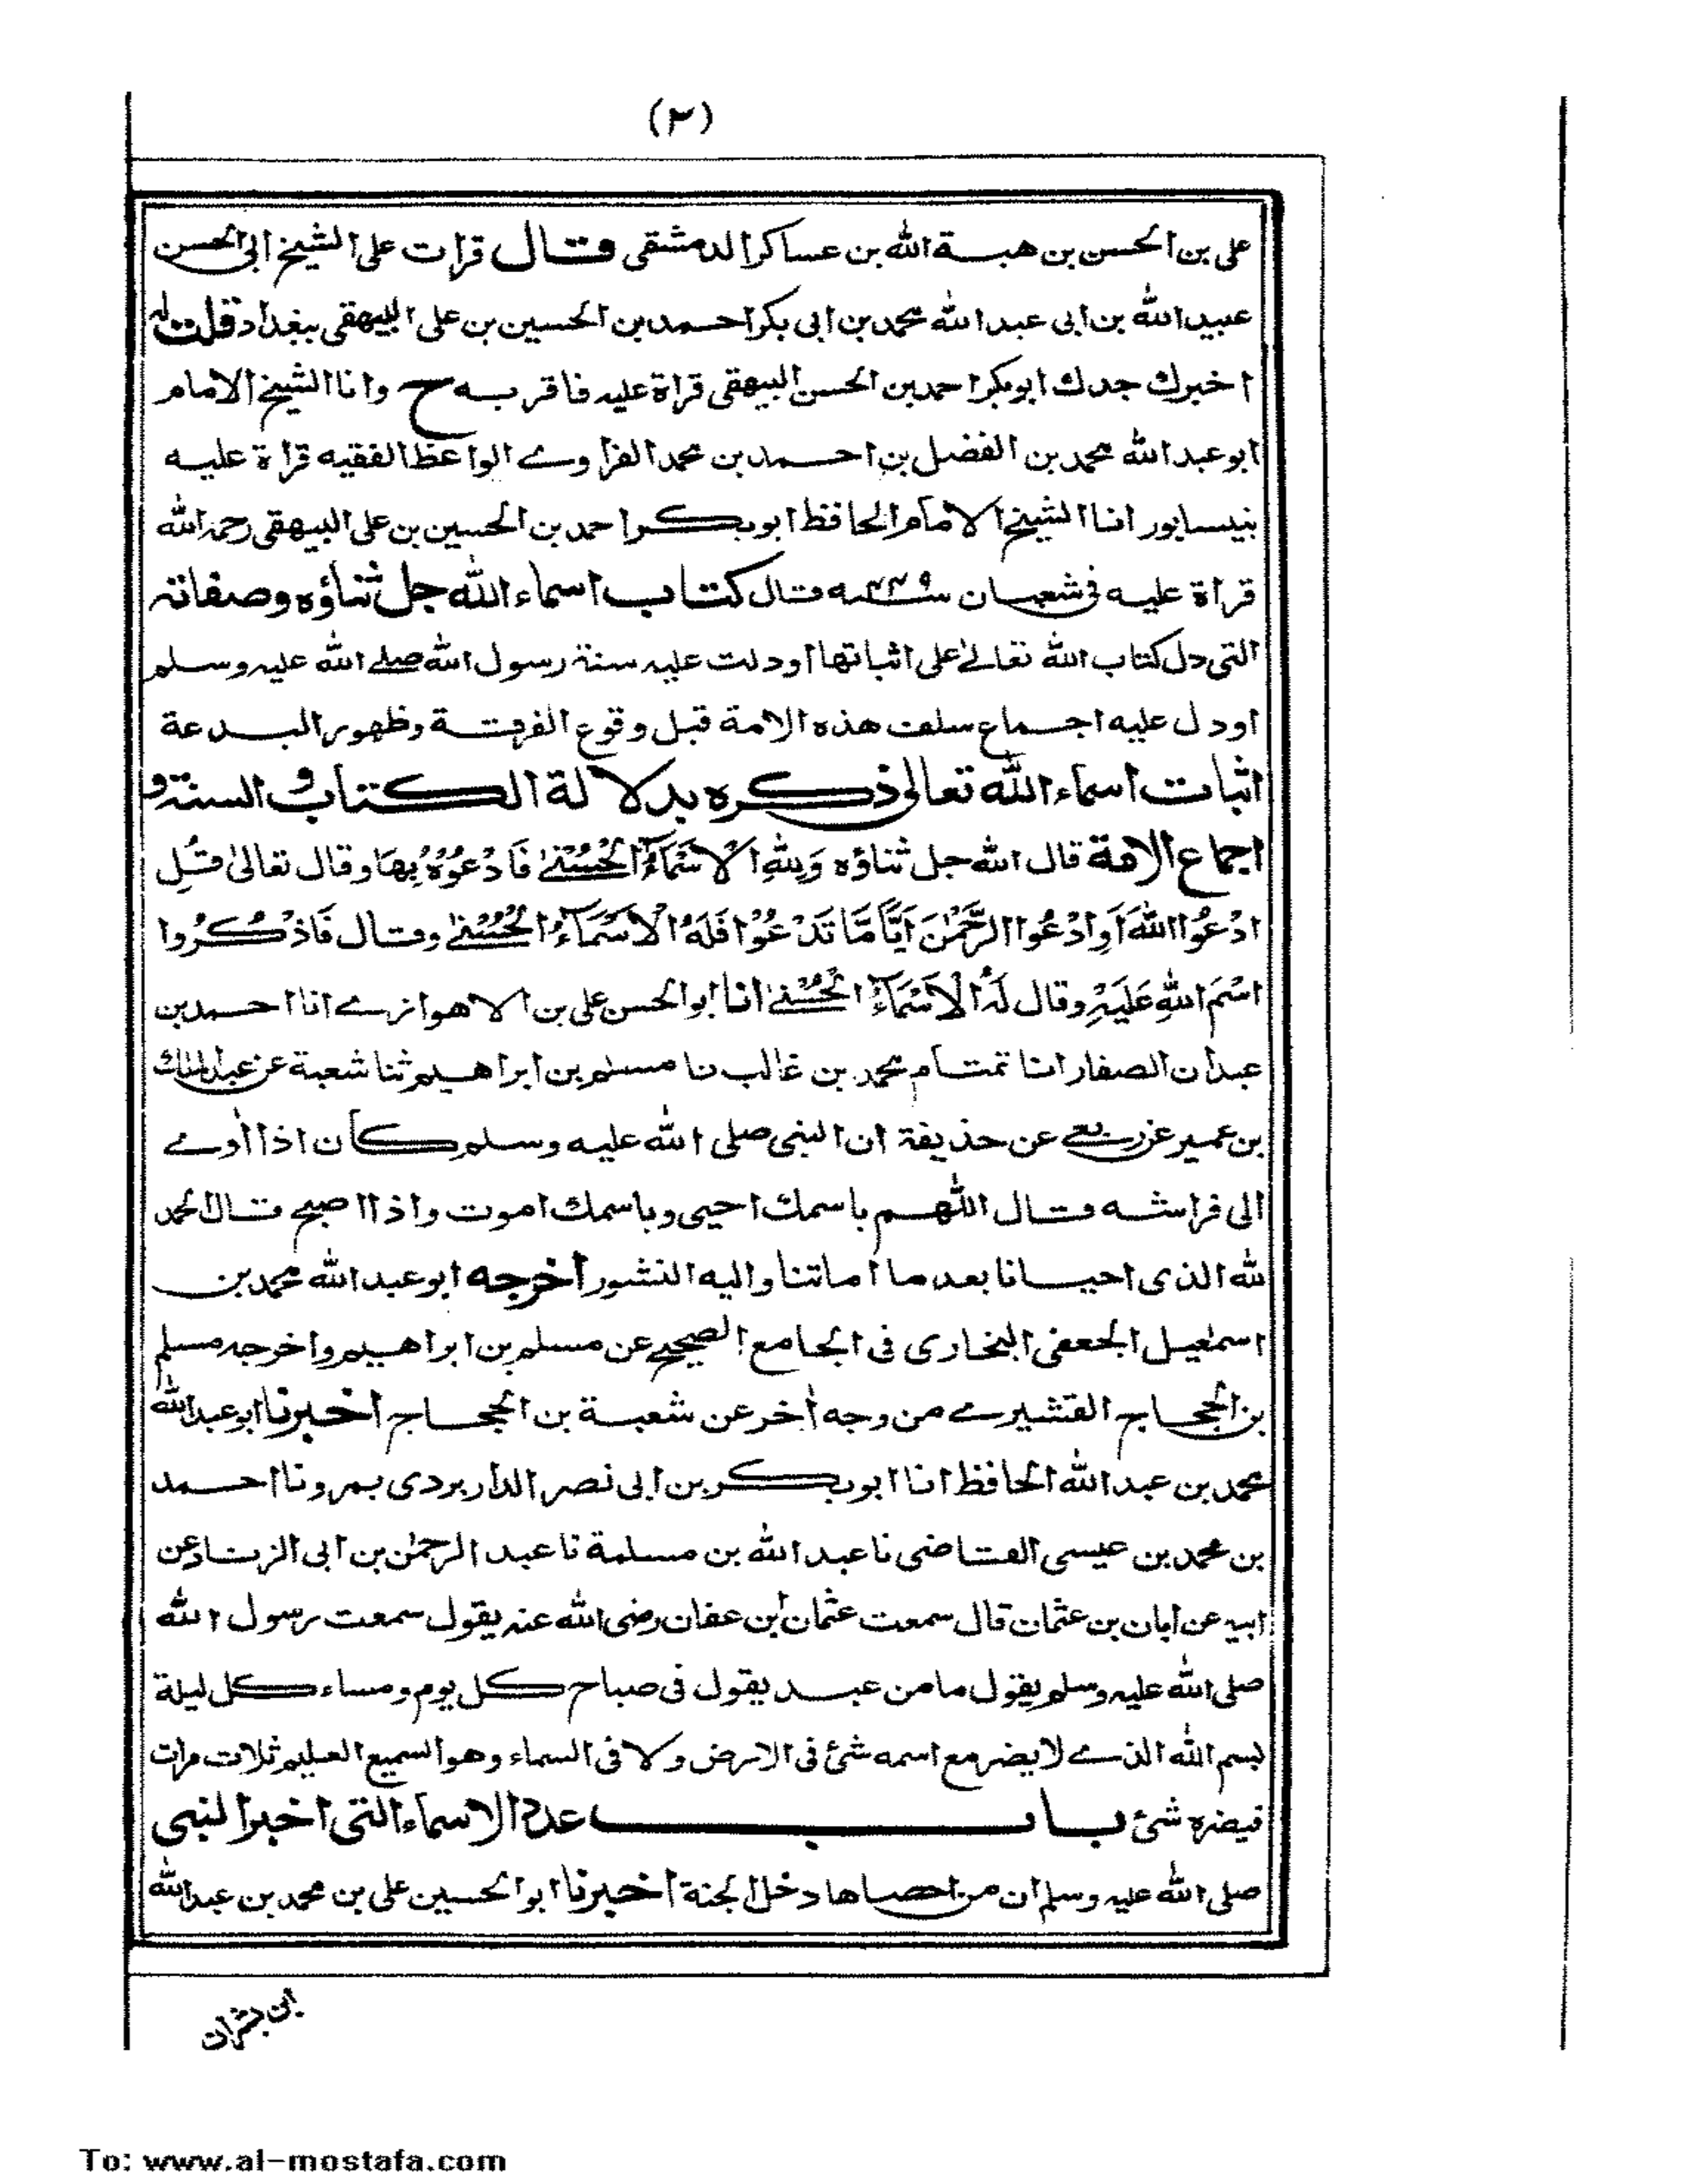 (٣)
علی بن الحسن بن هبة الله بن عساكر الدمشقی قال قرات علی الشیخ ابی الحسن
عبید الله بن ابی عبد الله محمد بن ابی بکر احمد بن الحسین بن علی البیهقی ببغداد قلت له
اخبرك جدك ابوبکر احمد بن الحسن البیهقی قراة علیه فاقر به ح وانا الشیخ الامام
ابو عبد الله محمد بن الفضل بن احمد بن محمد الفراوے الواعظ الفقیه قراة علیه
بنیسابور انا الشیخ الامام الحافظ ابوبکر احمد بن الحسین بن علی البیهقی رحمه الله
قراة علیه فی شعبان سنة ٤٤٩ قال کتاب اسماء الله جل ثناؤه وصفاته
التی دل کتاب الله تعالےٰ علی اثباتها او دلت علیه سنة رسول الله صلے الله علیه وسلم
او دل علیه اجماع سلف هذه الامة قبل وقوع الفرقة وظهور البدعة
اثبات اسماء الله تعالی ذکره بدلالة الکتاب والسنة و
اجماع الامة قال الله جل ثناؤه وَلِلّٰهِ الْاَسْمَآءُ الْحُسْنٰے فَادْعُوْهُ بِهَا وقال تعالیٰ قُلِ
ادْعُوا اللّٰهَ اَوِ ادْعُوا الرَّحْمٰنَ اَیًّا مَّا تَدْعُوْا فَلَهُ الْاَسْمَآءُ الْحُسْنٰے وقال فَاذْکُرُوا
اسْمَ اللّٰهِ عَلَیْهِ وقال لَهُ الْاَسْمَآءُ الْحُسْنٰے انا ابو الحسن علی بن الاهوازے انا احمد بن
عبدان الصفار انا تمتام محمد بن غالب نا مسلم بن ابراهیم ثنا شعبة عن عبد الملك
بن عمیر عن ربعے عن حذیفة ان النبی صلی الله علیه وسلم کان اذا اوے
الی فراشه قال اللهم باسمك احیی وباسمك اموت واذا اصبح قال الحمد
لله الذی احیانا بعد ما اماتنا والیه النشور اخرجه ابو عبد الله محمد بن
اسمٰعیل الجعفی البخاری فی الجامع الصحیح عن مسلم بن ابراهیم واخرجه مسلم
بن الحجاج القشیرے من وجه اٰخر عن شعبة بن الحجاج اخبرنا ابو عبد الله
محمد بن عبد الله الحافظ انا ابوبکر بن ابی نصر الداربردی بمرو نا احمد
بن محمد بن عیسی القاضی نا عبد الله بن مسلمة نا عبد الرحمٰن بن ابی الزناد عن
ابیه عن ابان بن عثمان قال سمعت عثمان ابن عفان رضی الله عنه یقول سمعت رسول الله
صلی الله علیه وسلم یقول ما من عبد یقول فی صباح کل یوم ومساء کل لیلة
بسم الله الذے لا یضر مع اسمه شئ فی الارض ولا فی السماء وهو السمیع العلیم ثلاث مرات
فیضره شئ باب عدد الاسماء التی اخبر النبی
صلی الله علیه وسلم ان من احصاها دخل الجنة اخبرنا ابو الحسین علی بن محمد بن عبد الله
ابن بشران
To: www.al-mostafa.com